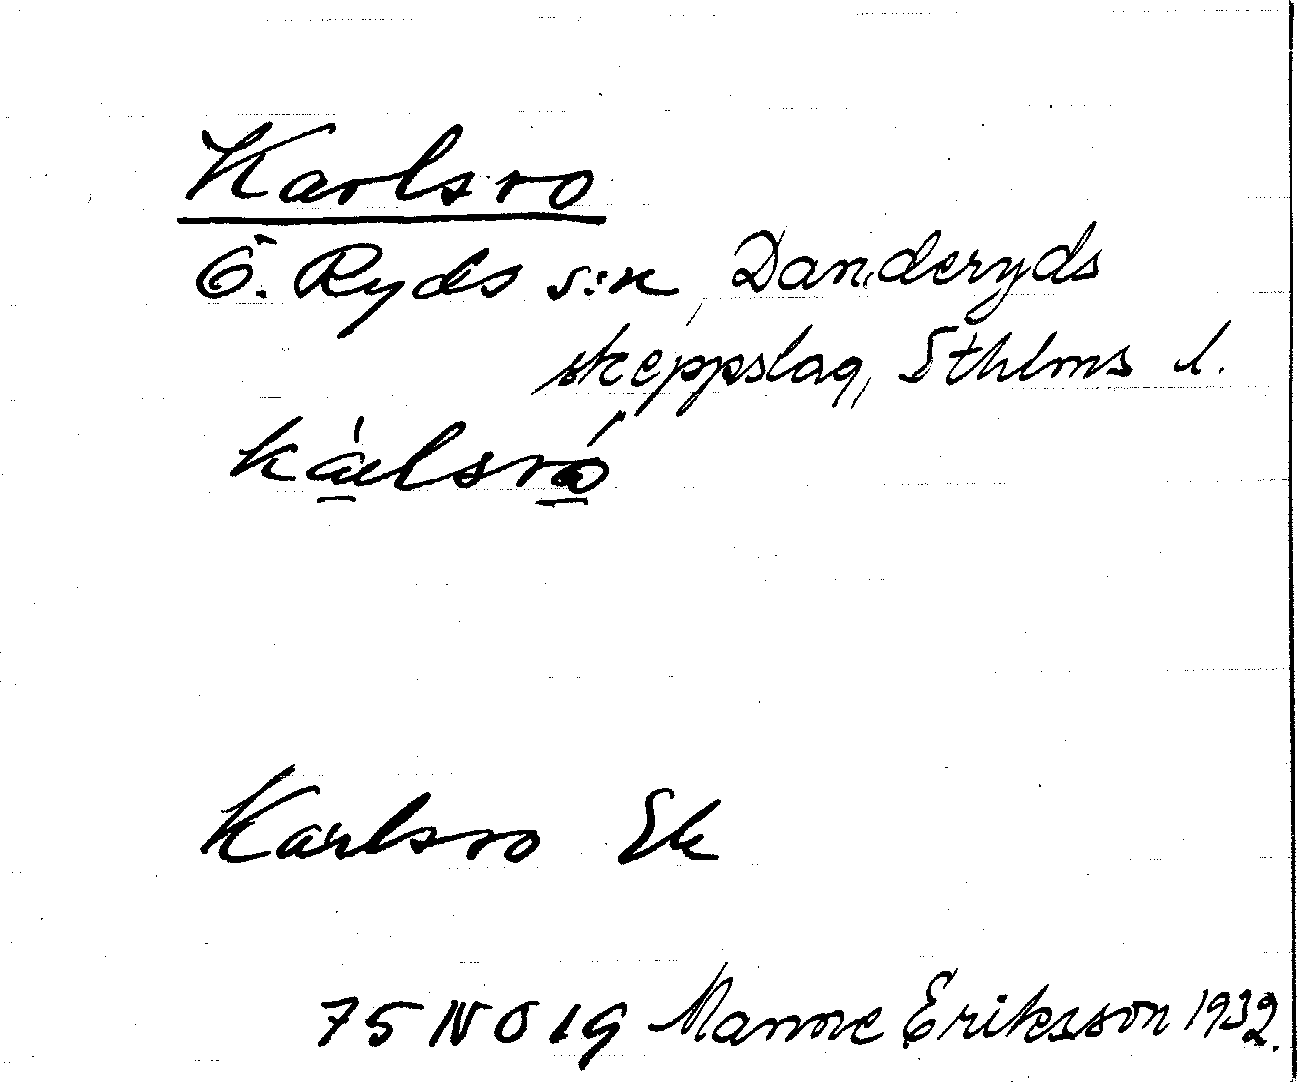 Karlsro
Ö. Ryds s:n, Danderyds
skeppslag, Sthlms l.
Karlsro Ek
75 NO 19 Manne Eriksson 1932.